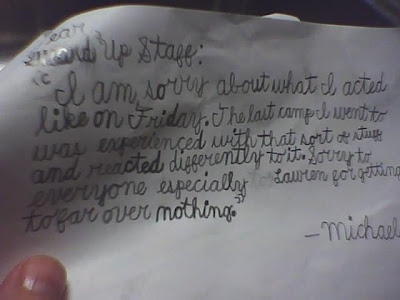 Dear
Up Staff:
"I am sorry about what I acted
like on Friday. The last camp I went to
was experienced with that sort of stuff
and reacted differently to it. Sorry to
everyone especially to Lauren for getting
to far over nothing."
—Michael